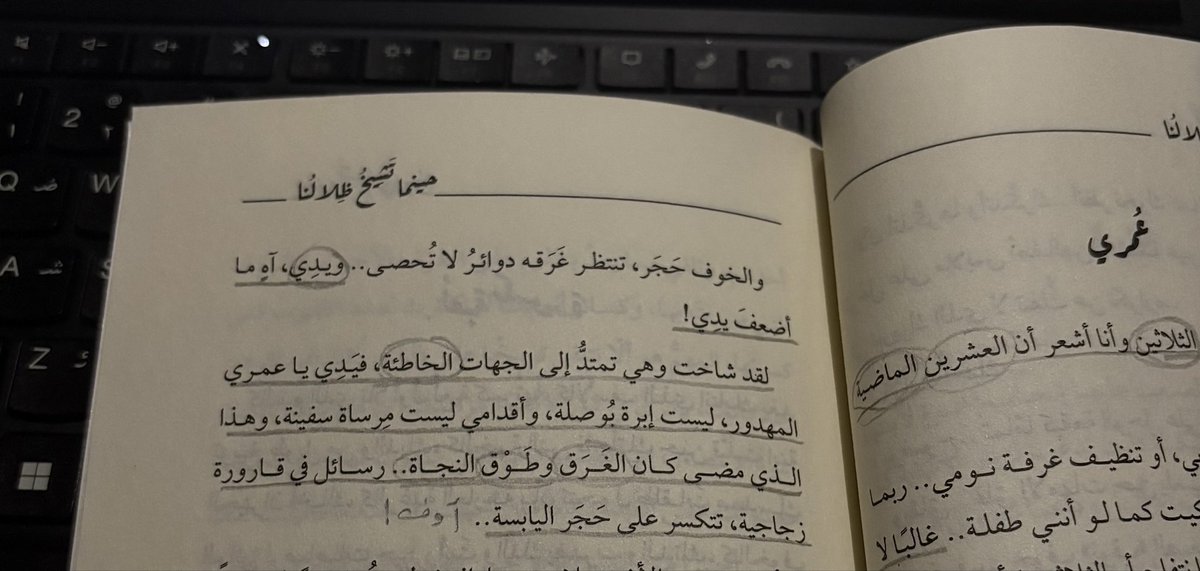 حينما تَشِيخُ ظِلالُنا
والخوف حَجَر، تنتظر غَرَقه دوائرُ لا تُحصى.. ويدِي، آهِ ما
أضعفَ يدِي!
لقد شاخت وهي تمتدُّ إلى الجهات الخاطئة، فيَدِي يا عمري
المهدور، ليست إبرة بُوصلة، وأقدامي ليست مِرساة سفينة، وهذا
الذي مضى كان الغَرَق وطَوْق النجاة.. رسائل في قارورة
زجاجية، تتكسر على حَجَر اليابسة..
عُمري
الثلاثين وأنا أشعر أن العشرين الماضية
أو تنظيف غرفة نومي.. ربما
كما لو أنني طفلة.. غالبًا لا
2
Q ض
W
A ش
S
Z